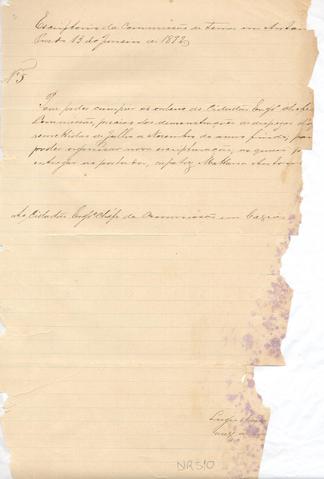 Escriptorio da Commissão de terras em Anton
Prado 13 de Janeiro de 1892
Nº 5
Para poder cumprir as ordens do Cidadão Engº Chefe
Commissão, preciso dos demonstrações de despezas
remettidas de Julho a Novembro do anno findo,
poder organisar nova escripturação, os quaes
entregar ao portador, capataz Matheus Antonio
Ao Cidadão Engº Chefe da Commissão em Caxias
NR 510